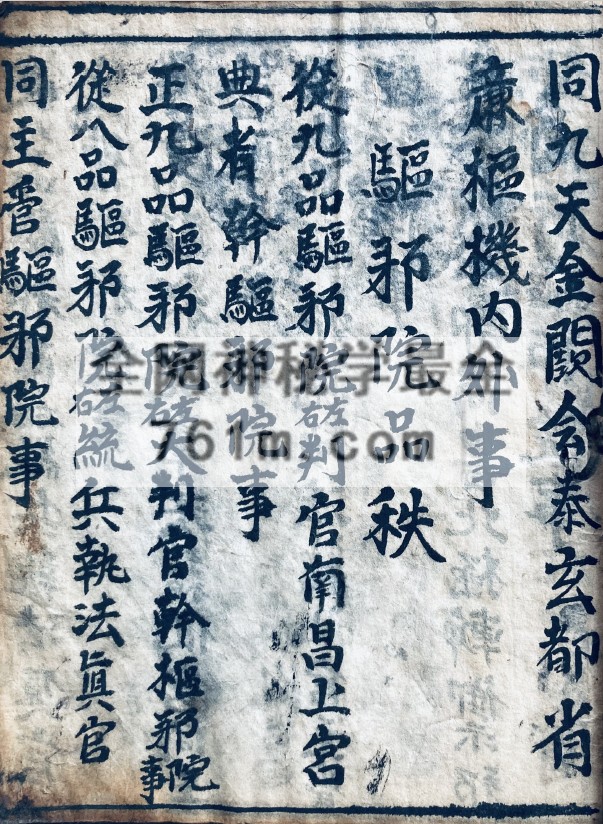 同九天金闕令泰玄都省
兼樞機內外事
驅邪院品秩
從九品驅邪院右判官南昌上宮
典者幹驅邪院事
正九品驅邪院右大判官幹樞邪院事
從八品驅邪院右統兵執法真官
同主管驅邪院事
全网神秘学最全
761m.com